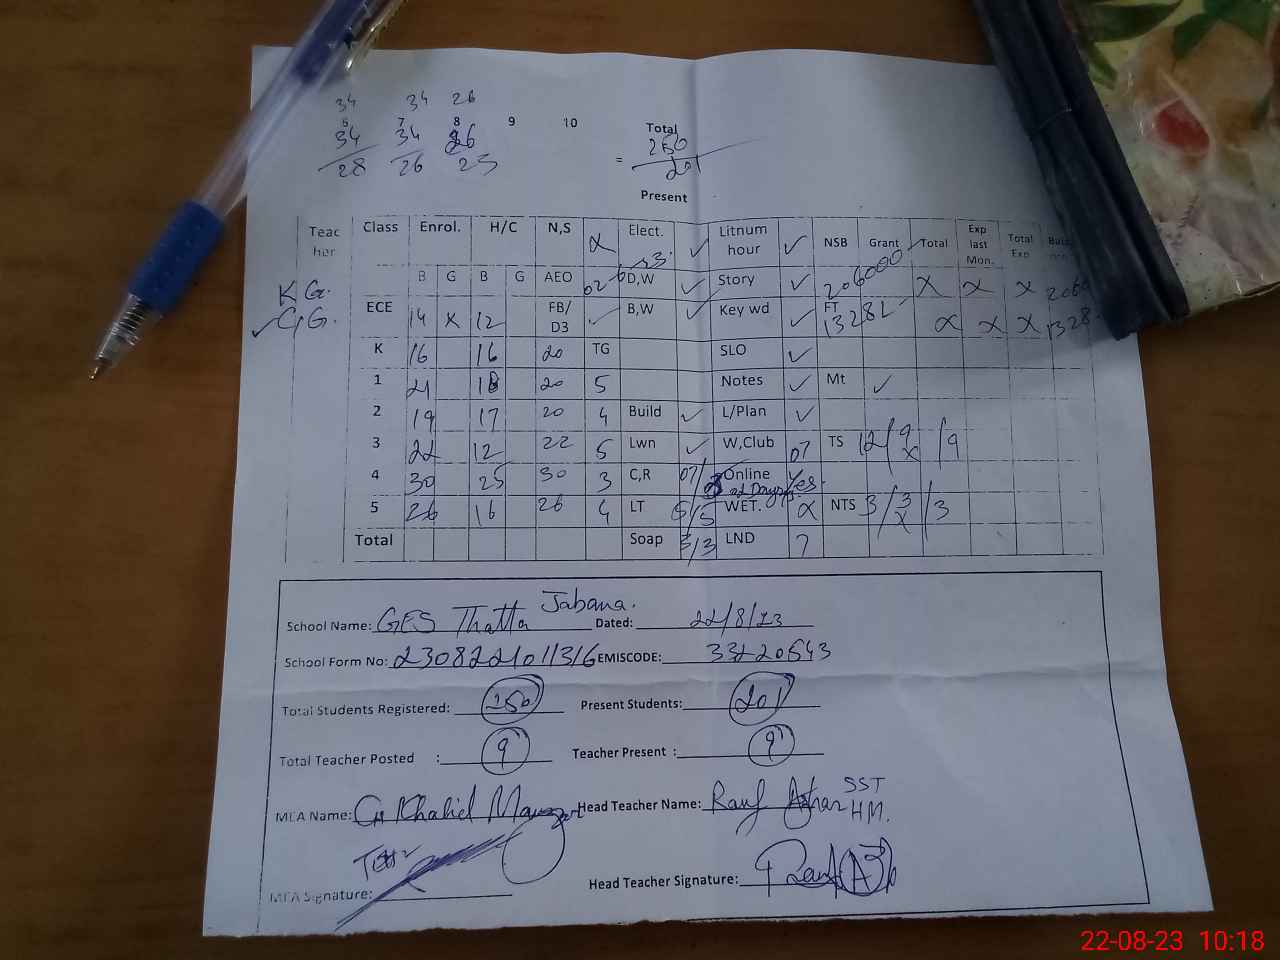 34 34 26
6 7 8 9 10 Total
34 34 26 250
28 26 25 = 201
Present
Teac her Class Enrol. H/C N,S Elect. ✓ Litnum hour ✓ NSB Grant Total Exp last Mon. Total Exp
B G B G AEO D,W ✓ Story ✓ 206000 X X X
K G.
✓ G G. ECE 14 X 12 FB/ D3 ✓ B,W ✓ Key wd ✓ FT 13282 X X X
K 16 16 20 TG SLO ✓
1 21 18 20 5 Notes ✓ Mt ✓
2 19 17 20 4 Build ✓ L/Plan ✓
3 22 12 22 5 Lwn ✓ W,Club 07 TS 12/9/9
4 30 25 30 3 C,R 07/ Online Yes.
5 26 16 26 4 LT 5/5 WET. X NTS 3/3/3
Total Soap 3/3 LND 7
School Name: GES Thatta Jabana. Dated: 22/8/23
School Form No: 2308221011316 EMISCODE: 33220543
Total Students Registered: 250 Present Students: 201
Total Teacher Posted : 9 Teacher Present : 9
MEA Name: Gh Khalid Head Teacher Name: Rauf Azhar SST HM.
MEA Signature: Head Teacher Signature:
22-08-23 10:18